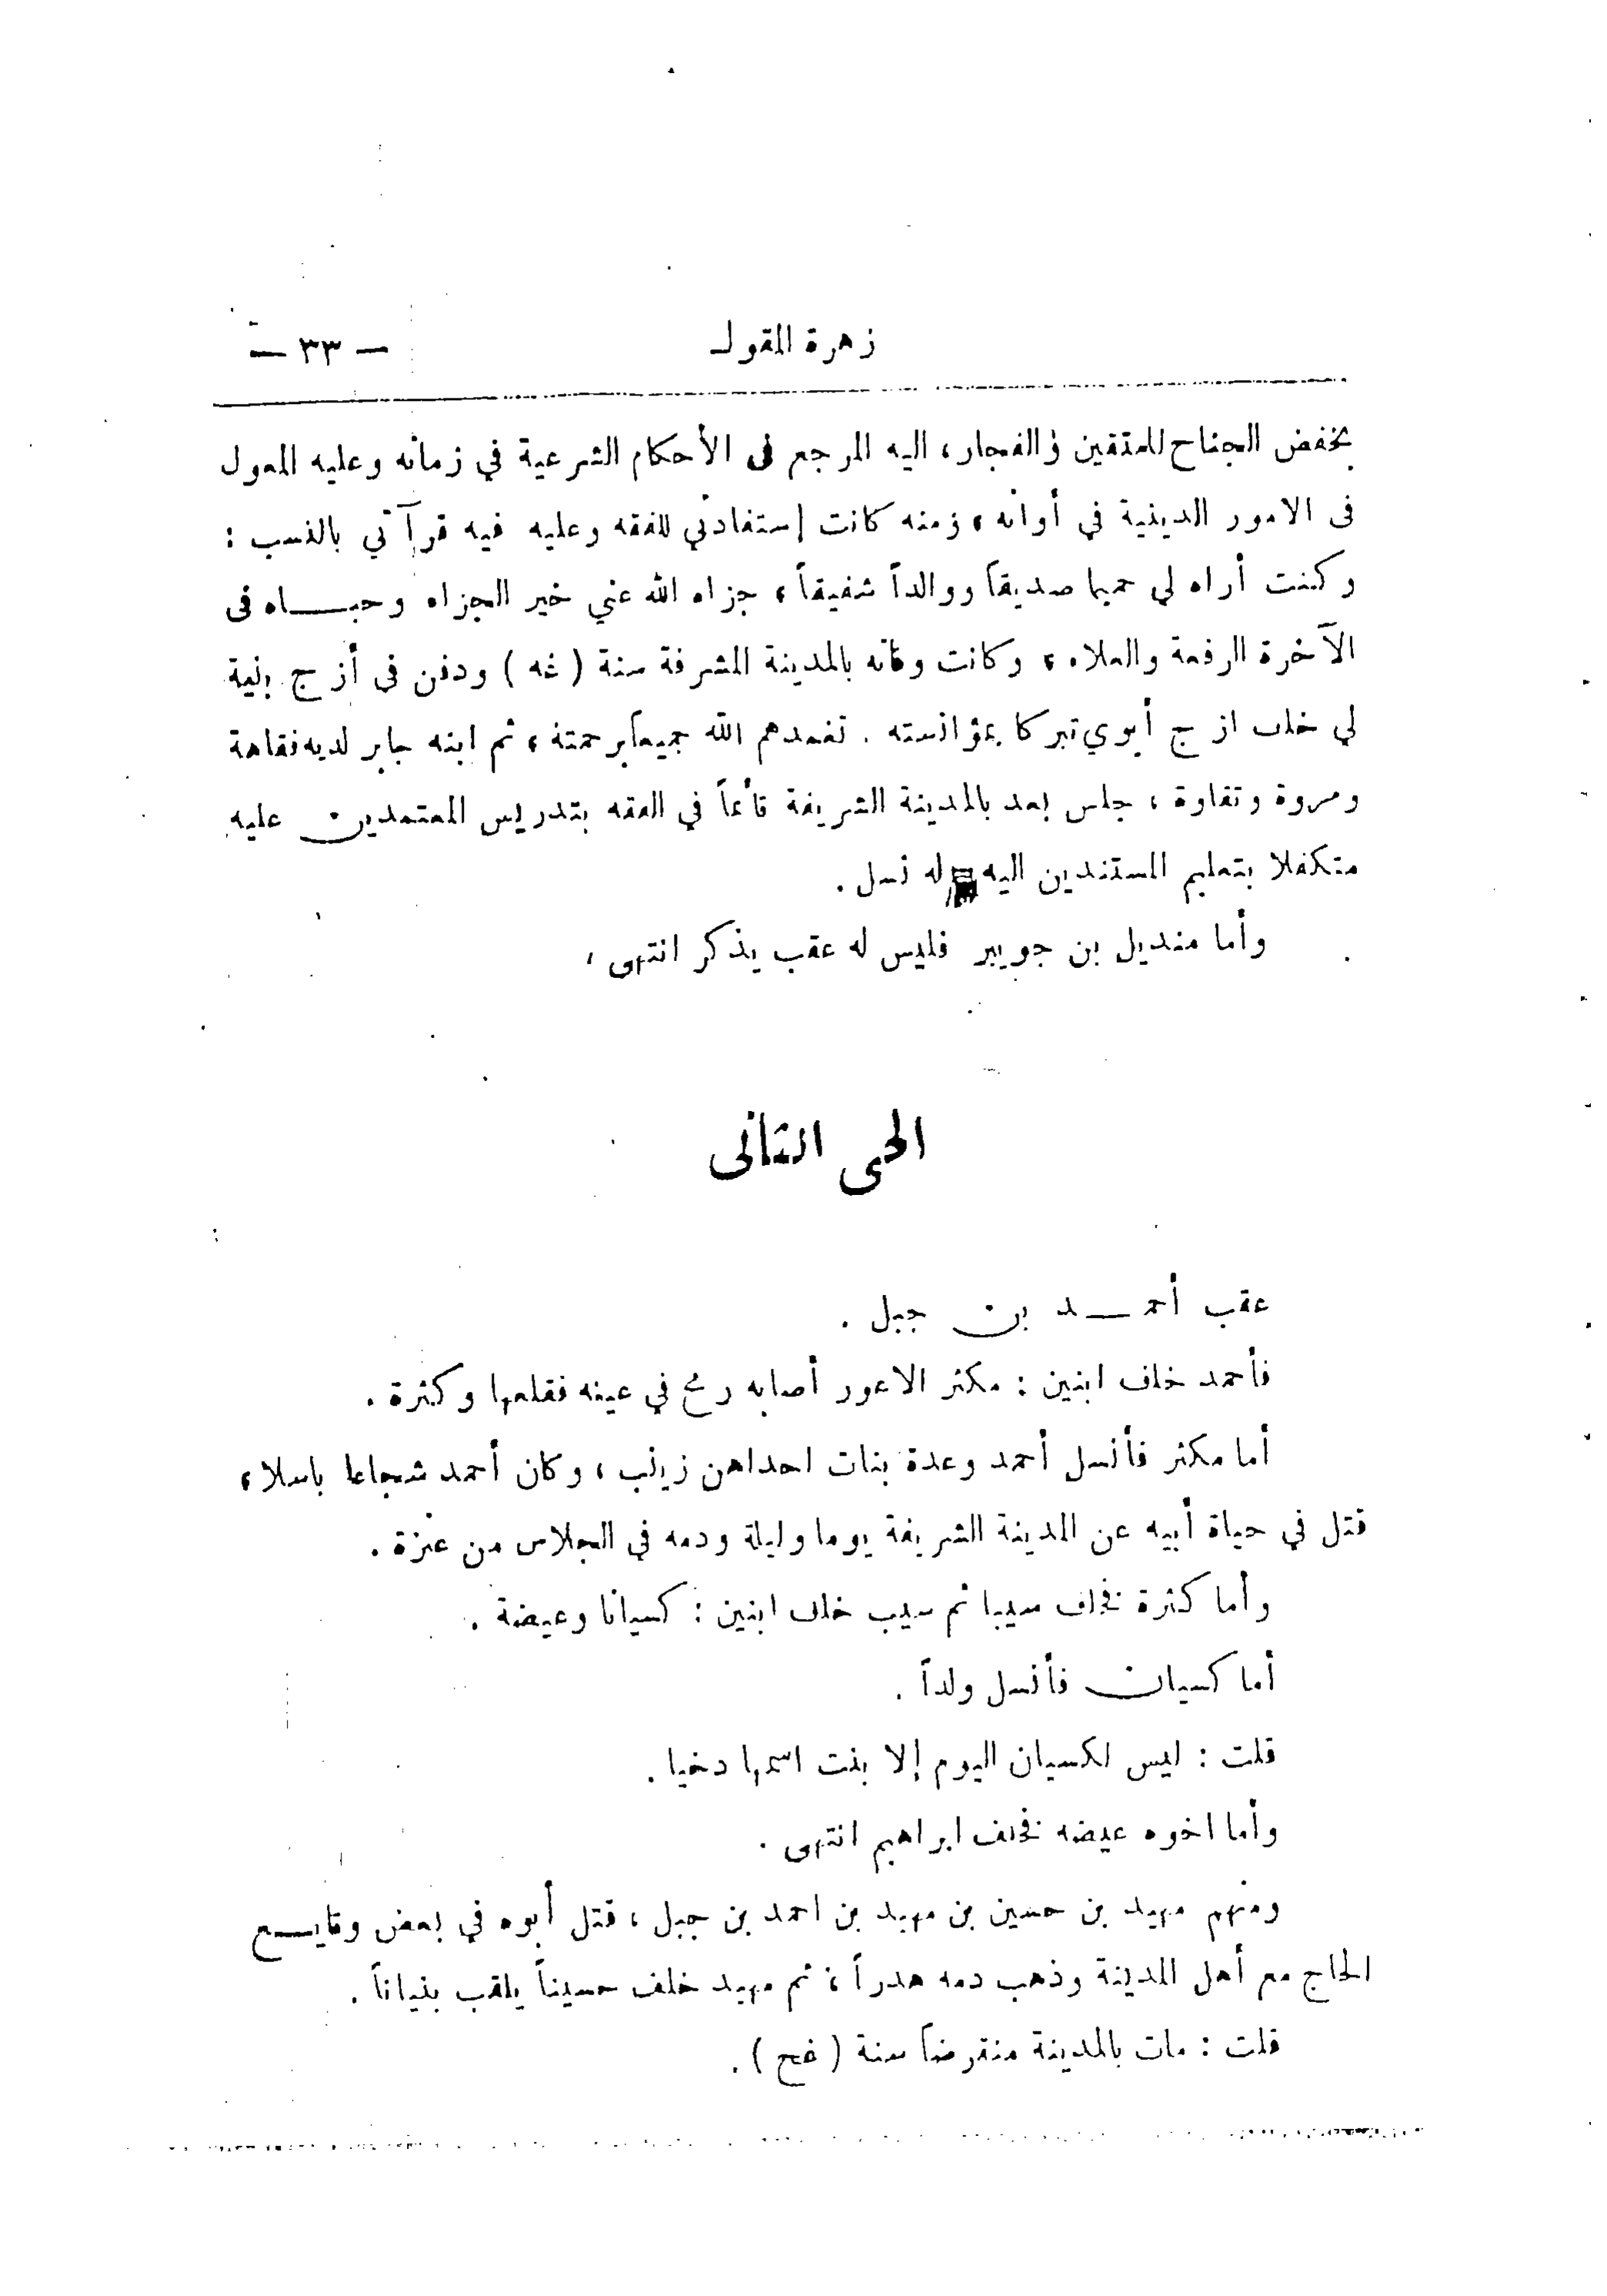 زهرة المقول
— ٣٣ —
يخفض الجناح للمتقين والفجار، اليه المرجع فى الأحكام الشرعية في زمانه وعليه المعول
فى الامور الدينية في أوانه، ومنه كانت إستفادتي للفقه وعليه فيه قرآتي بالنسب :
وكنت أراه لي حميما صديقاً ووالداً شفيقاً، جزاه الله عني خير الجزاه وحبـــاه فى
الآخرة الرفعة والعلاء، وكانت وفاته بالمدينة المشرفة سنة ( ثه ) ودفن فى أزج بنية
لي خلف ازج أبوي تبركا بمؤانسته . تغمدهم الله جميعاً برحمته، ثم ابنه جابر لديه نقاهة
ومروة وتقاوة، جلس بعد بالمدينة الشريفة قائماً في الفقه بتدريس المعتمدين عليه
متكفلا بتعليم المستندين اليه له نسل .
وأما منديل بن جويبر فليس له عقب يذكر انتهى ،
الحى الثانى
عقب أحمــد بن جبل .
فأحمد خلف ابنين : مكثر الاعور أصابه رمح في عينه فقلعها وكثرة .
أما مكثر فأنسل أحمد وعدة بنات احداهن زينب، وكان أحمد شجاعا باسلا،
قتل في حياة أبيه عن المدينة الشريفة يوما وليلة ودمه في الجلاس من عنزة .
وأما كثرة فخلف سيبا ثم سيب خلف ابنين : كسيانا وعيضة .
أما كسيان فأنسل ولداً .
قلت : ليس لكسيان اليوم إلا بنت اسمها دخيا .
وأما اخوه عيضه فخلف ابراهيم انتهى .
ومنهم مهيد بن حسين بن مهيد بن احمد بن جبل، قتل أبوه في بعض وقايــع
الحاج مع أهل المدينة وذهب دمه هدراً، ثم مهيد خلف حسيناً يلقب بنياناً .
قلت : مات بالمدينة منقرضاً سنة ( ضح ) .